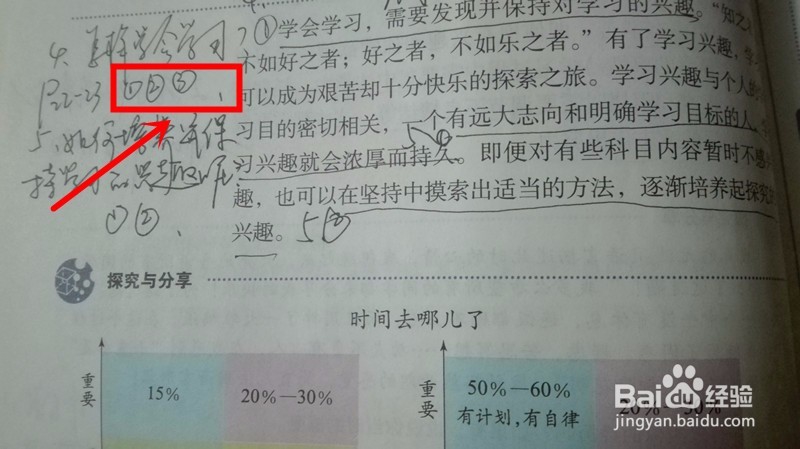 ①学会学习，需要发现并保持对学习的兴趣。“知之
不如好之者；好之者，不如乐之者。”有了学习兴趣，学
可以成为艰苦却十分快乐的探索之旅。学习兴趣与个人的
习目的密切相关，一个有远大志向和明确学习目标的人，
习兴趣就会浓厚而持久。即便对有些科目内容暂时不感
趣，也可以在坚持中摸索出适当的方法，逐渐培养起探究
兴趣。5②
4.
学会学习
P22-23 ①②③、
5、如何培养并保
持学习的兴趣呢
①②、
5①
探究与分享
时间去哪儿了
重要
15%
20%—30%
重要
50%—60%
有计划，有自律
20%—30%
Baidu经验
jingyan.baidu.com